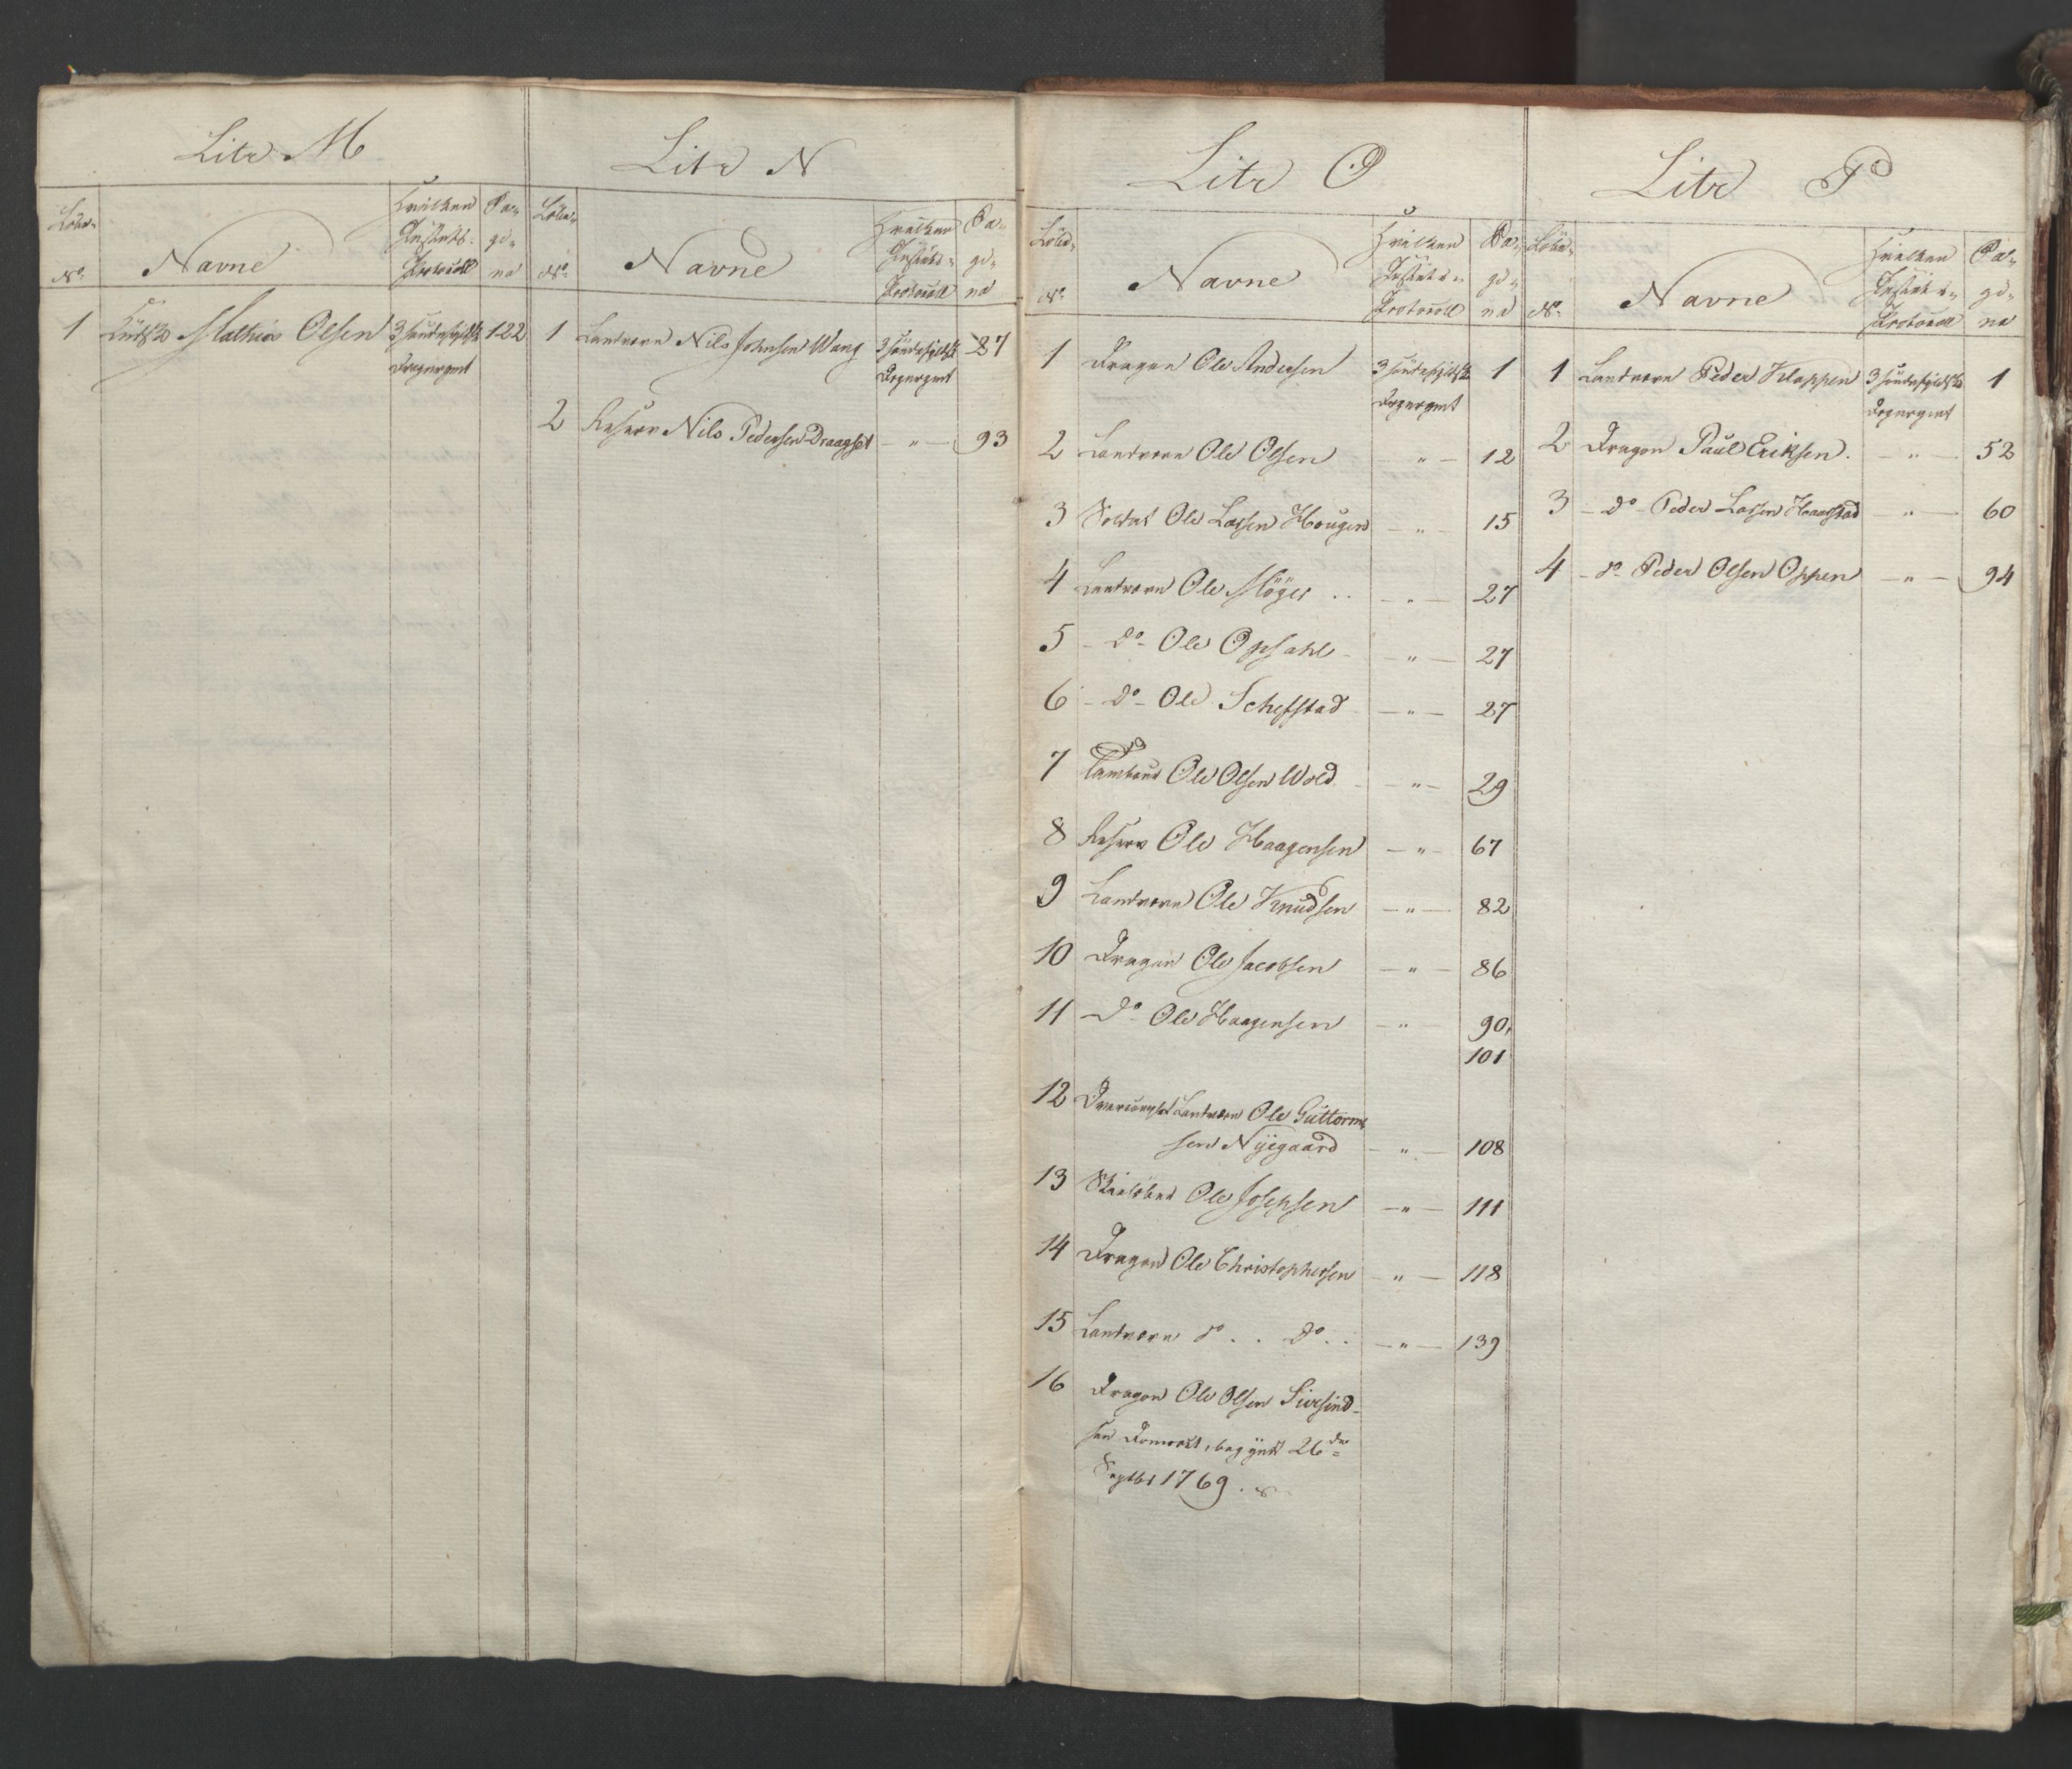 Litr M
Löbe- No
Navne
Hvilken Justits- Protocoll
Pa- gi- na
1 Mathias Olsen 3 Söndenfieldske 122
Drag: regmt
Litr N
Löbe- No
Navne
Hvilken Justits- Protocoll
Pa- gi- na
1 Landværn Nils Johnsen Wang 3 Söndenfieldske 27
Drag: regmt
2 Reserv Nils Pedersen Draagset — " — 93
Litr O
Löbe- No
Navne
Hvilken Justits- Protocoll
Pa- gi- na
1 Dragon Ole Andersen 3 Söndenfieldske 1
Drag: regmt
2 Landværn Ole Olsen " — 12
3 Soldat Ole Larsen Hougen — " — 15
4 Landværn Ole Möyer .. — " — 27
5 - do - Ole Opsahl - — " — 27
6 - do - Ole Schefstad — " — 27
7 Tambour Ole Olsen Wold - — " — 29
8 Reserv Ole Haagensen — " — 67
9 Landværn Ole Knudsen — " — 82
10 Dragon Ole Jacobsen — " — 86
11 - do - Ole Haagensen — " — 90,
101
12 Landværn Ole Guttorm-
sen Nyegaard — " — 108
13 Skielöber Ole Josephsen — " — 111
14 Dragon Ole Christophersen — " — 118
15 Landværn do . . do . . — " — 139
16 Dragon Ole Olsen
26de
Septbr 1769.
Litr P
Löbe- No
Navne
Hvilken Justits- Protocoll
Pa- gi- na
1 Landværn Peder Klappen 3 Söndenfieldske 1
Drag: regmt
2 Dragon Paul Eriksen. — " — 52
3 - do - Peder Larsen Haagstad " — 60
4 - do - Peder Olsen Oppen — " — 94